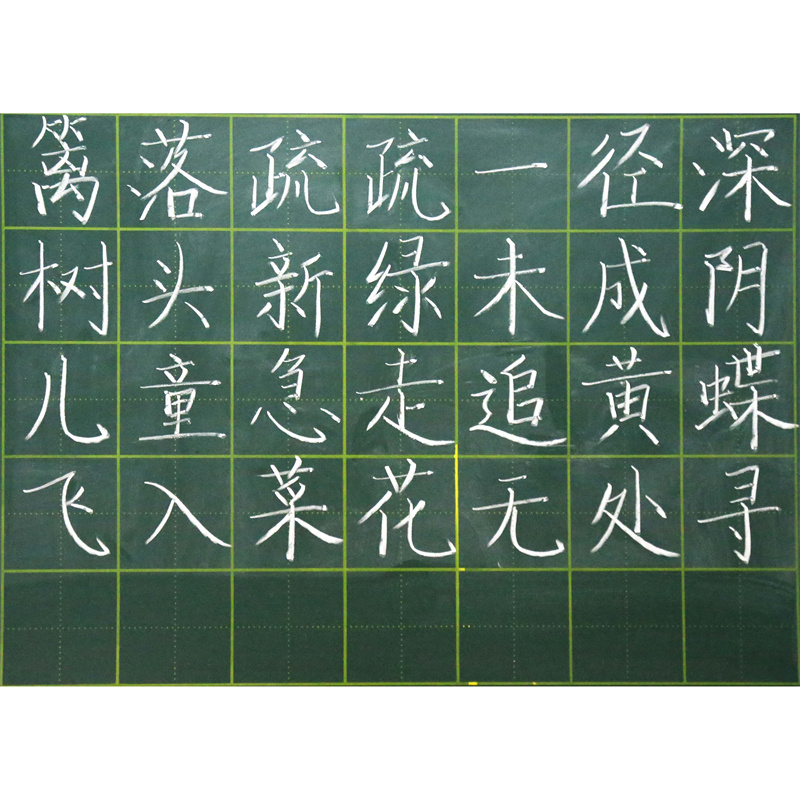 篱落疏疏一径深
树头新绿未成阴
儿童急走追黄蝶
飞入菜花无处寻